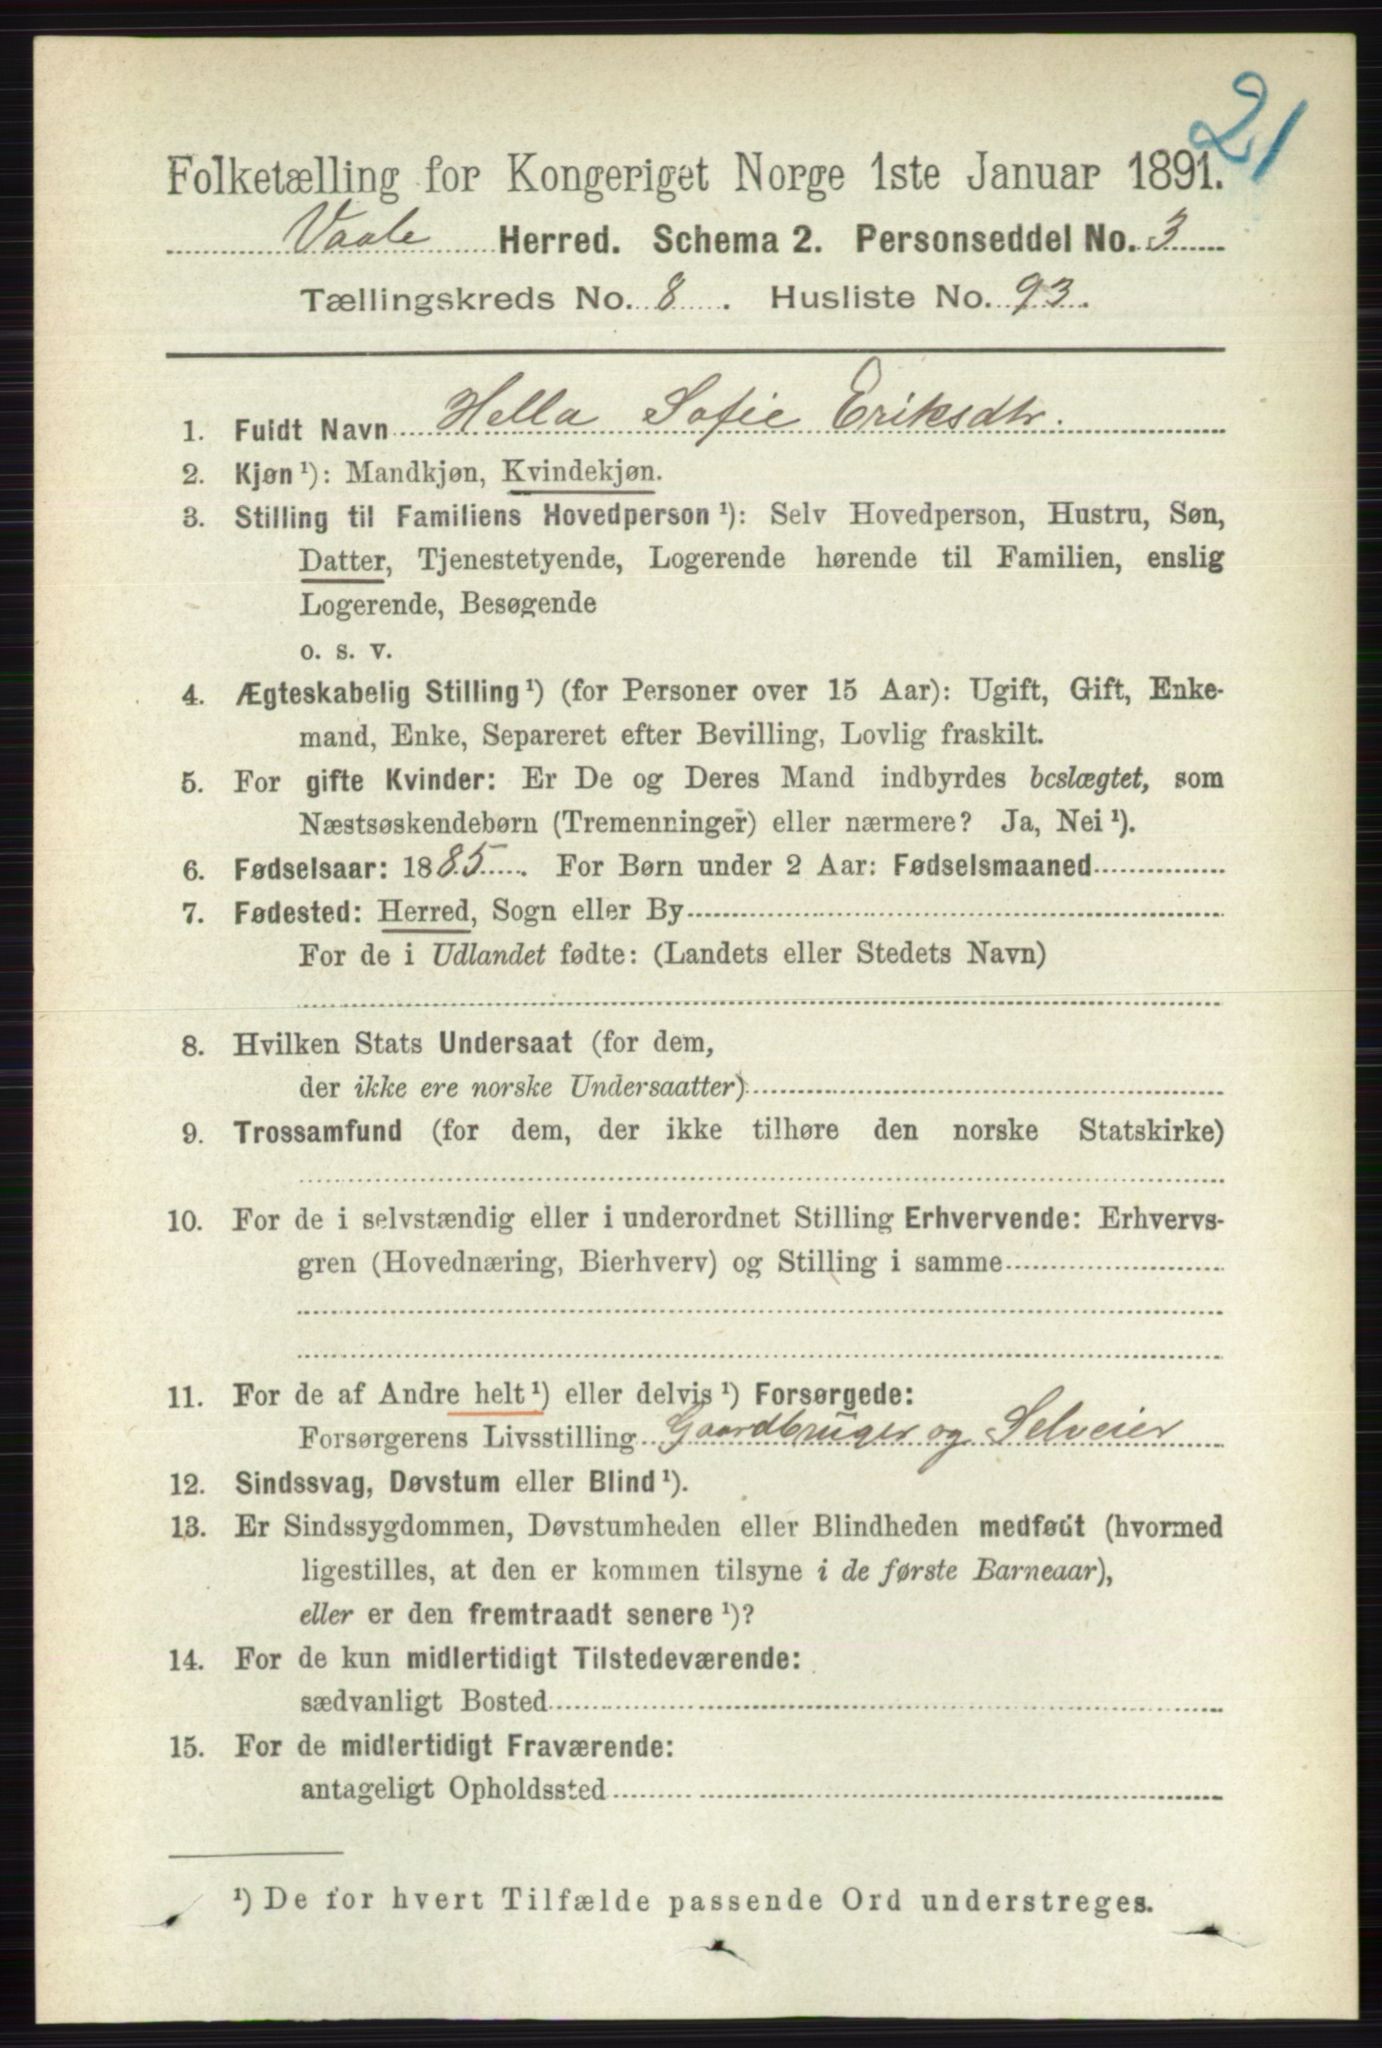 21
Folketælling for Kongeriget Norge 1ste Januar 1891.
Vaale Herred. Schema 2. Personseddel No. 3
Tællingskreds No. 8. Husliste No. 93.
1. Fuldt Navn Hella Sofie Eriksdtr.
2. Kjøn ¹): Mandkjøn, Kvindekjøn.
3. Stilling til Familiens Hovedperson ¹): Selv Hovedperson, Hustru, Søn,
Datter, Tjenestetyende, Logerende hørende til Familien, enslig
Logerende, Besøgende
o. s. v.
4. Ægteskabelig Stilling ¹) (for Personer over 15 Aar): Ugift, Gift, Enke-
mand, Enke, Separeret efter Bevilling, Lovlig fraskilt.
5. For gifte Kvinder: Er De og Deres Mand indbyrdes beslægtet, som
Næstsøskendebørn (Tremenninger) eller nærmere? Ja, Nei ¹).
6. Fødselsaar: 1885. For Børn under 2 Aar: Fødselsmaaned
7. Fødested: Herred, Sogn eller By
For de i Udlandet fødte: (Landets eller Stedets Navn)
8. Hvilken Stats Undersaat (for dem,
der ikke ere norske Undersaatter)
9. Trossamfund (for dem, der ikke tilhøre den norske Statskirke)
10. For de i selvstændig eller i underordnet Stilling Erhvervende: Erhvervs-
gren (Hovednæring, Bierhverv) og Stilling i samme
11. For de af Andre helt ¹) eller delvis ¹) Forsørgede:
Forsørgerens Livsstilling Gaardbruger og Selveier
12. Sindssvag, Døvstum eller Blind ¹).
13. Er Sindssygdommen, Døvstumheden eller Blindheden medfødt (hvormed
ligestilles, at den er kommen tilsyne i de første Barneaar),
eller er den fremtraadt senere ¹)?
14. For de kun midlertidigt Tilstedeværende:
sædvanligt Bosted
15. For de midlertidigt Fraværende:
antageligt Opholdssted
¹) De for hvert Tilfælde passende Ord understreges.